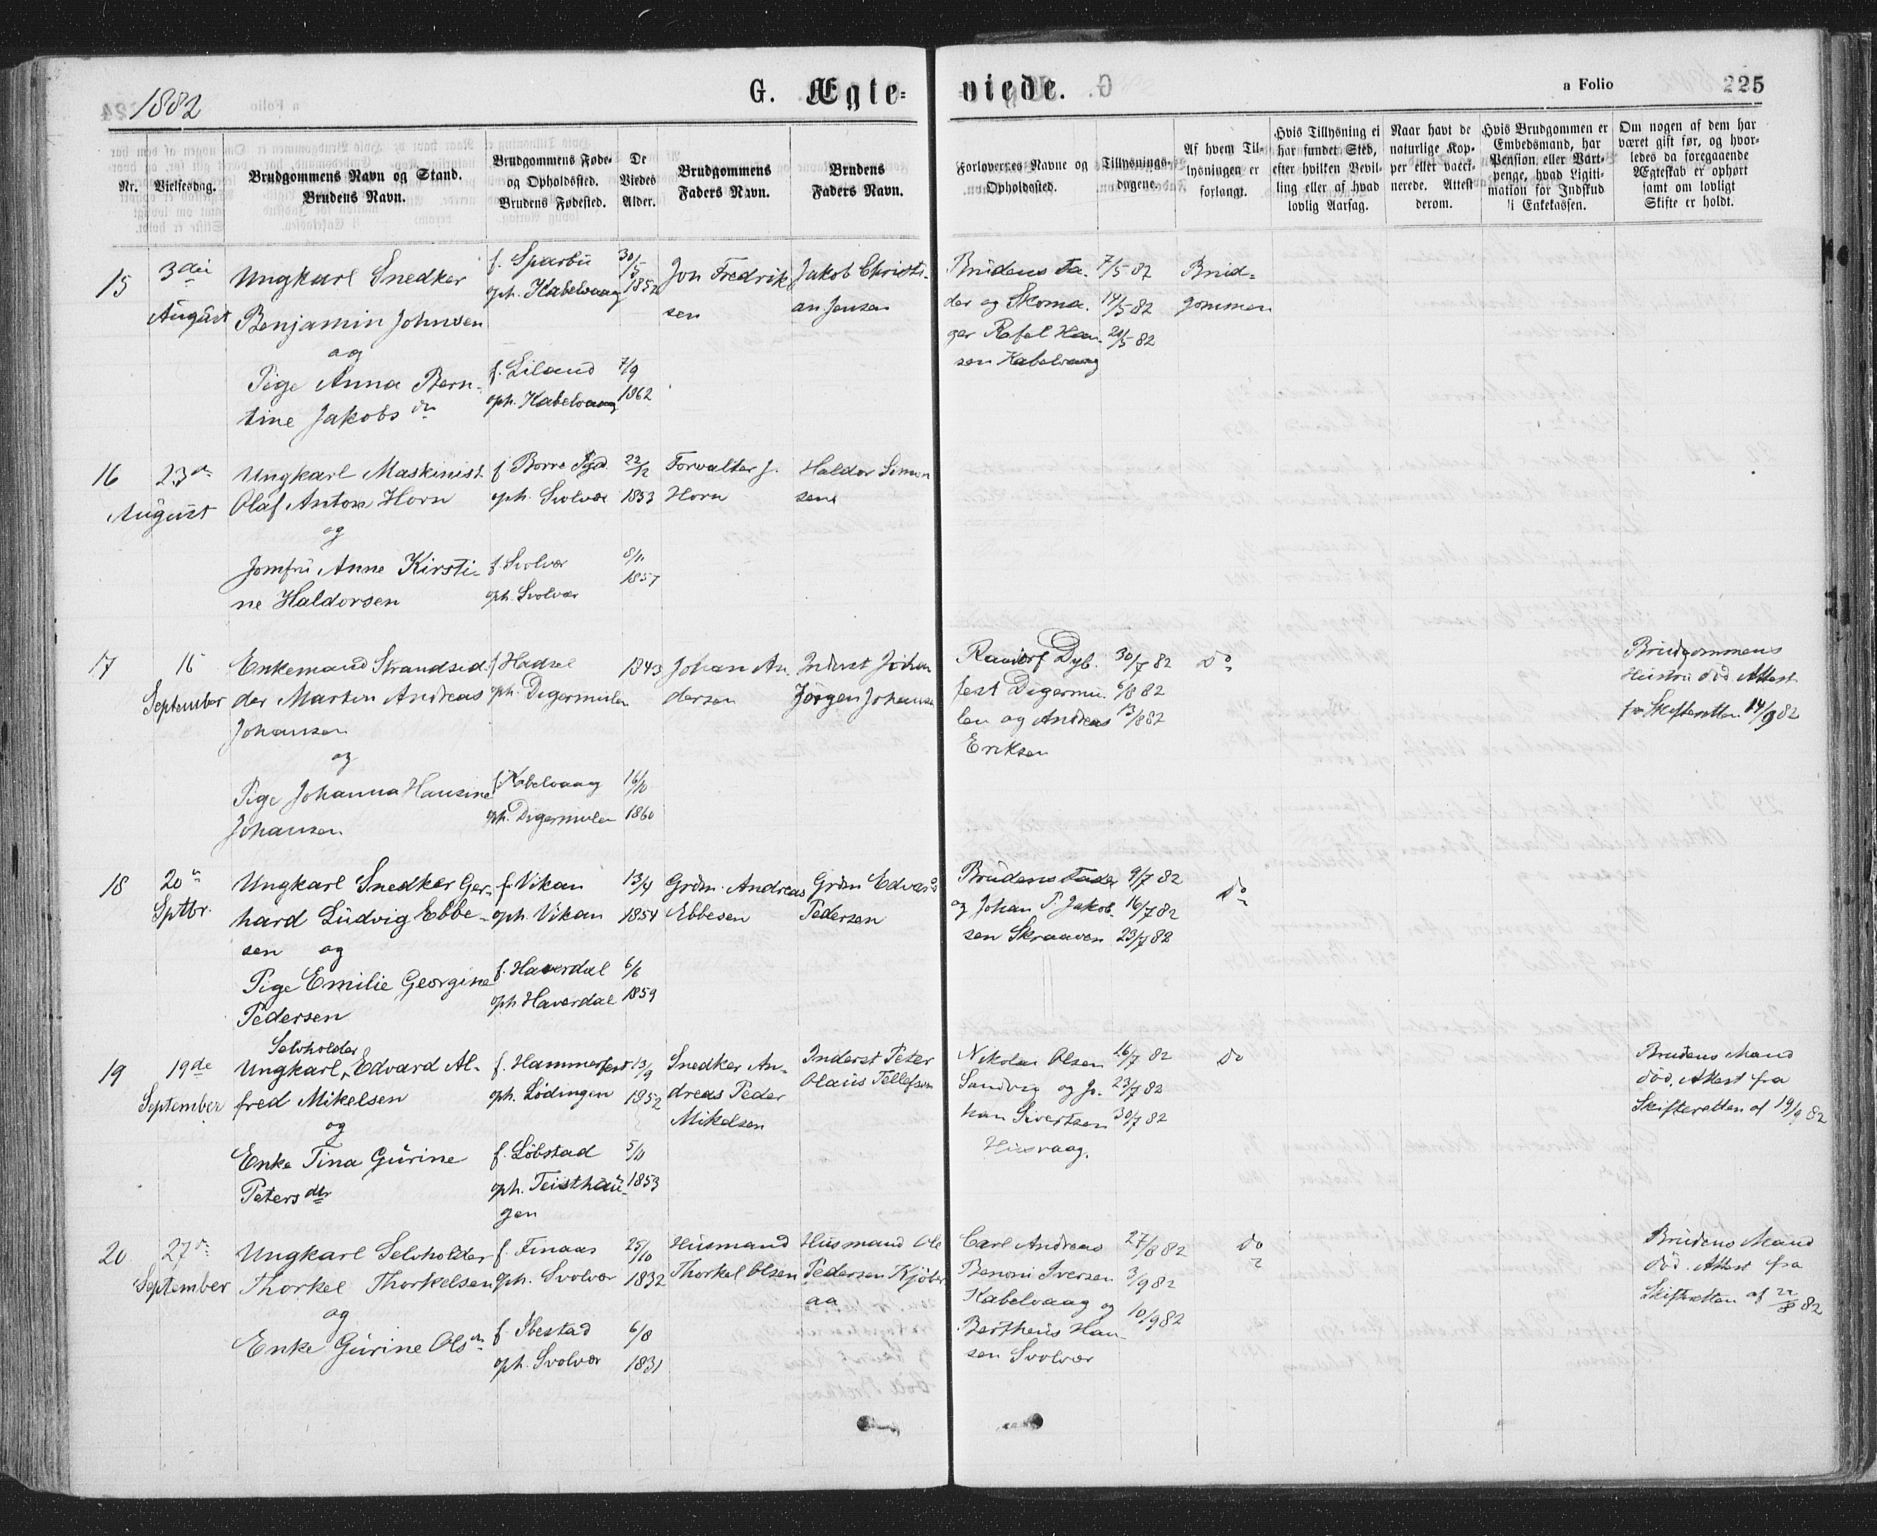 1882
G. Ægte-
viede.
a Folio
225
Nr.
Vielsesdag.
Brudgommens Navn og Stand.
Brudens Navn.
Brudgommens Føde-
og Opholdssted.
Brudens Fødested.
De
Viedes
Alder.
Brudgommens
Faders Navn.
Brudens
Faders Navn.
Forloveres Navne og
Opholdssted.
Tillysnings-
dagene.
Af hvem Til-
lysningen er
forlangt.
Hvis Tillysning ei
har fundet Sted,
efter hvilken Bevil-
ling eller af hvad
lovlig Aarsag.
Naar havt de
naturlige Kop-
per eller vacci-
nerede. Attest
derom.
Hvis Brudgommen er
Embedsmand, har
Pension eller Vart-
penge, hvad Ligiti-
mation for Indskud
i Enkekassen.
Om nogen af dem har
været gift før, og hvor-
ledes da foregaaende
Ægteskab er ophørt
samt om lovligt
Skifte er holdt.
15
3die
August
Ungkarl Snedker
Benjamin Johnsen
og
Pige Anna Bern-
tine Jakobsdr
f. Sparbu
oph. Kabelvaag
f. Liland
oph. Kabelvaag
30/5
1852
7/9
1862
Jon Fredrik-
sen
Jakob Christi-
an Jensen
Brudens Fa-
der og Skoma-
ger Rafel Han-
sen Kabelvaag
7/5 82
14/5 82
21/5 82
Brud-
gommen
16
23de
August
Ungkarl Maskinist
Olaf Anton Horn
og
Jomfru Anne Kirsti-
ne Haldorsen
f. Borre Pgd.
oph. Svolvær
f. Svolvær
oph. Svolvær
22/12
1853
8/11
1857
Forvalter J.
Horn
Haldor Simon
sen
17
16
September
Enkemand Strandsid-
der Martin Andreas
Johansen
og
Pige Johanna Hansine
Johansen
f. Hadsel
oph. Digermulen
f. Kabelvaag
oph. Digermulen
1843
16/10
1860
Johan An-
dersen
Inderst Johan
Jørgen Johansen
Dyb-
fest Digermu-
len og Andreas
Eriksen
30/7 82
6/8 82
13/8 82
Do
Brudgommens
Hustru død Attest
fra Skifteretten 14/9 82
18
20de
Sptbr.
Ungkarl Snedker Ger-
hard Ludvig Ebbe-
sen og
Pige Emilie Georgine
Pedersen
f. Vikan
oph. Vikan
f. Haverdal
oph. Haverdal
13/4
1854
6/6
1859
Grdm. Andreas
Ebbesen
Grdm Edvard
Pedersen
Brudens Fader
og Johan P. Jakob-
sen Skraaven
9/7 82
16/7 82
23/7 82
Do
19
19de
September
Selvholder
Ungkarl Edvard Al-
fred Mikelsen
og
Enke Tina Gurine
Petersdtr
f. Hammerfest
oph. Lødingen
f. Løbstad
oph. Teisthau-
gen
13/9
1852
5/11
1853
Snedker An-
dreas Peder
Mikelsen
Inderst Peter
Olaus Tellefsen
Nikolai Olsen
Sandvig og Jo-
han Sivertsen
Husvaag.
16/7 82
23/7 82
30/7 82
Do
Brudens Mand
død. Attest fra
Skifteretten af 19/9 82
20
27de
September
Ungkarl Selvholder
Thorkel Thorkelsen
og
Enke Gurine Olsdr
f. Finaas
oph. Svolvær
f. Ibestad
oph. Svolvær
25/10
1832
6/8
1831
Husmand
Thorkel Olsen
Husmand Ole
Pedersen Kjøber
aa
Carl Andreas
Benoni Iversen
Kabelvaag og
Bertheus Han-
sen Svolvær
27/8 82
3/9 82
10/9 82
Do
Brudens Mand
død. Attest fra
Skifteretten af 22/8 82